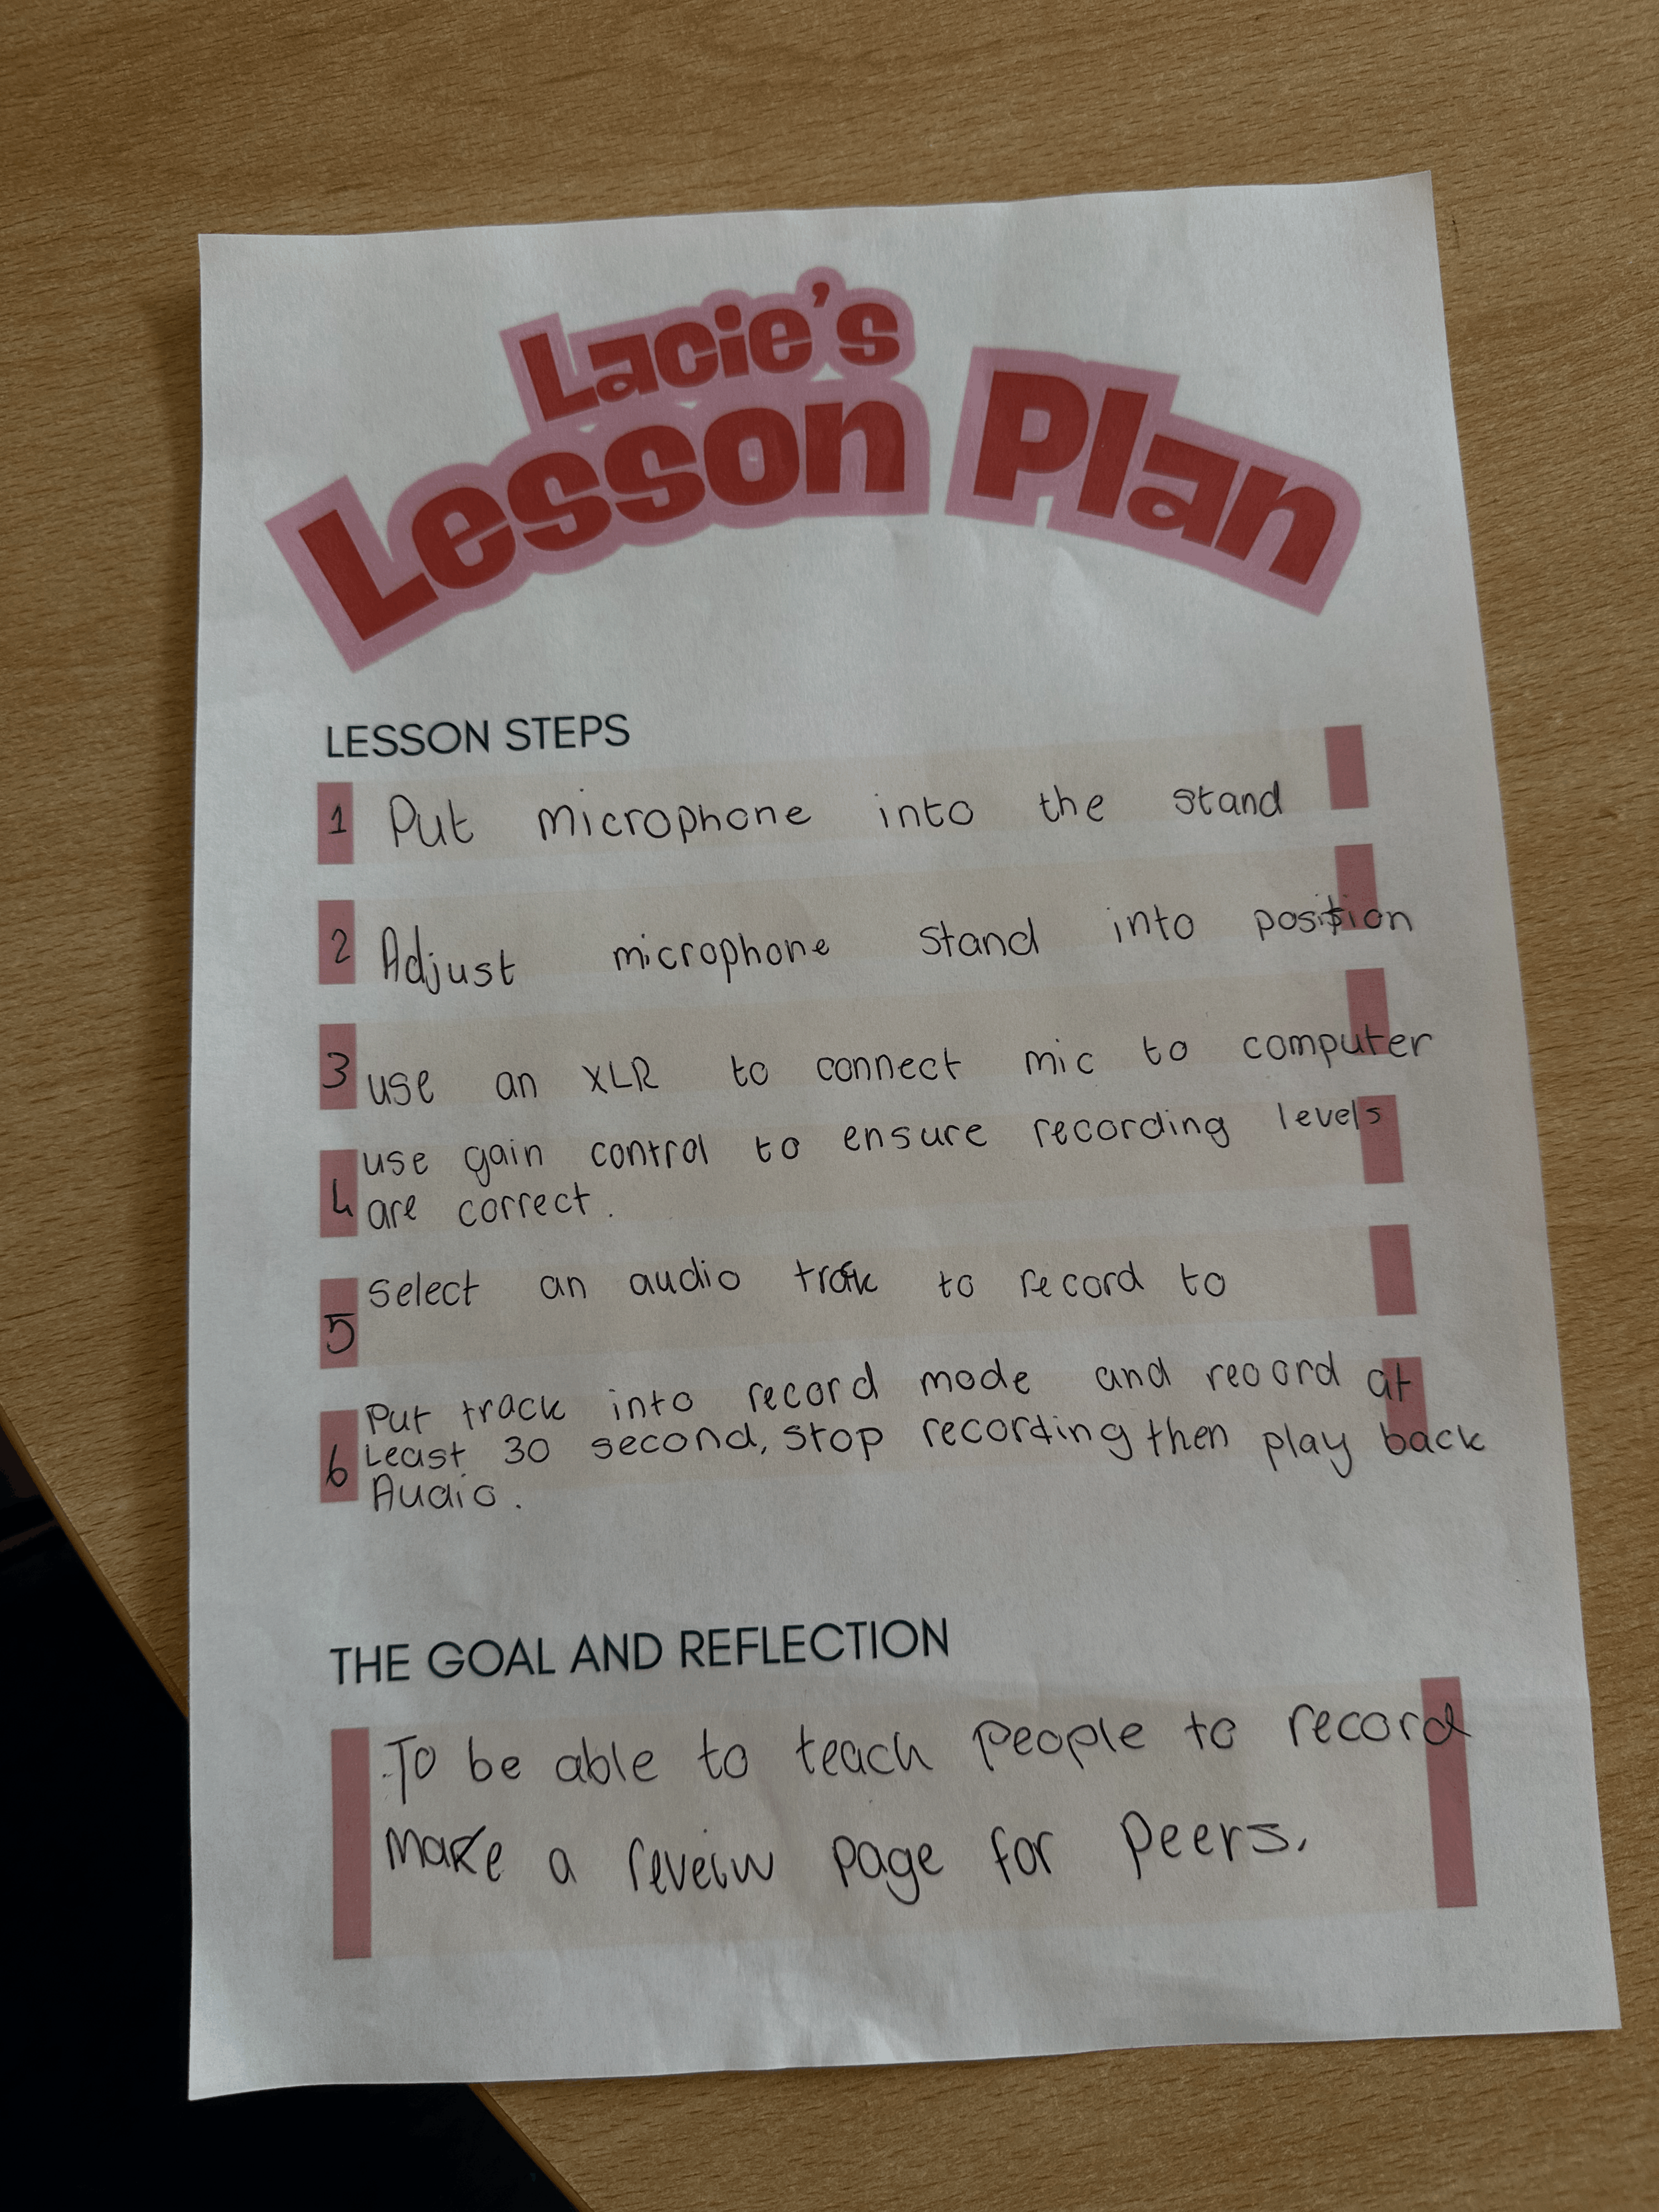 Lacie's
Lesson Plan
LESSON STEPS
1 Put microphone into the stand
2 Adjust microphone stand into position
3 use an XLR to connect mic to computer
use gain control to ensure recording levels
4 are correct.
Select an audio track to record to
5
Put track into record mode and record at
6 Least 30 second, stop recording then play back
Audio.
THE GOAL AND REFLECTION
To be able to teach people to record
make a reveiw page for peers.